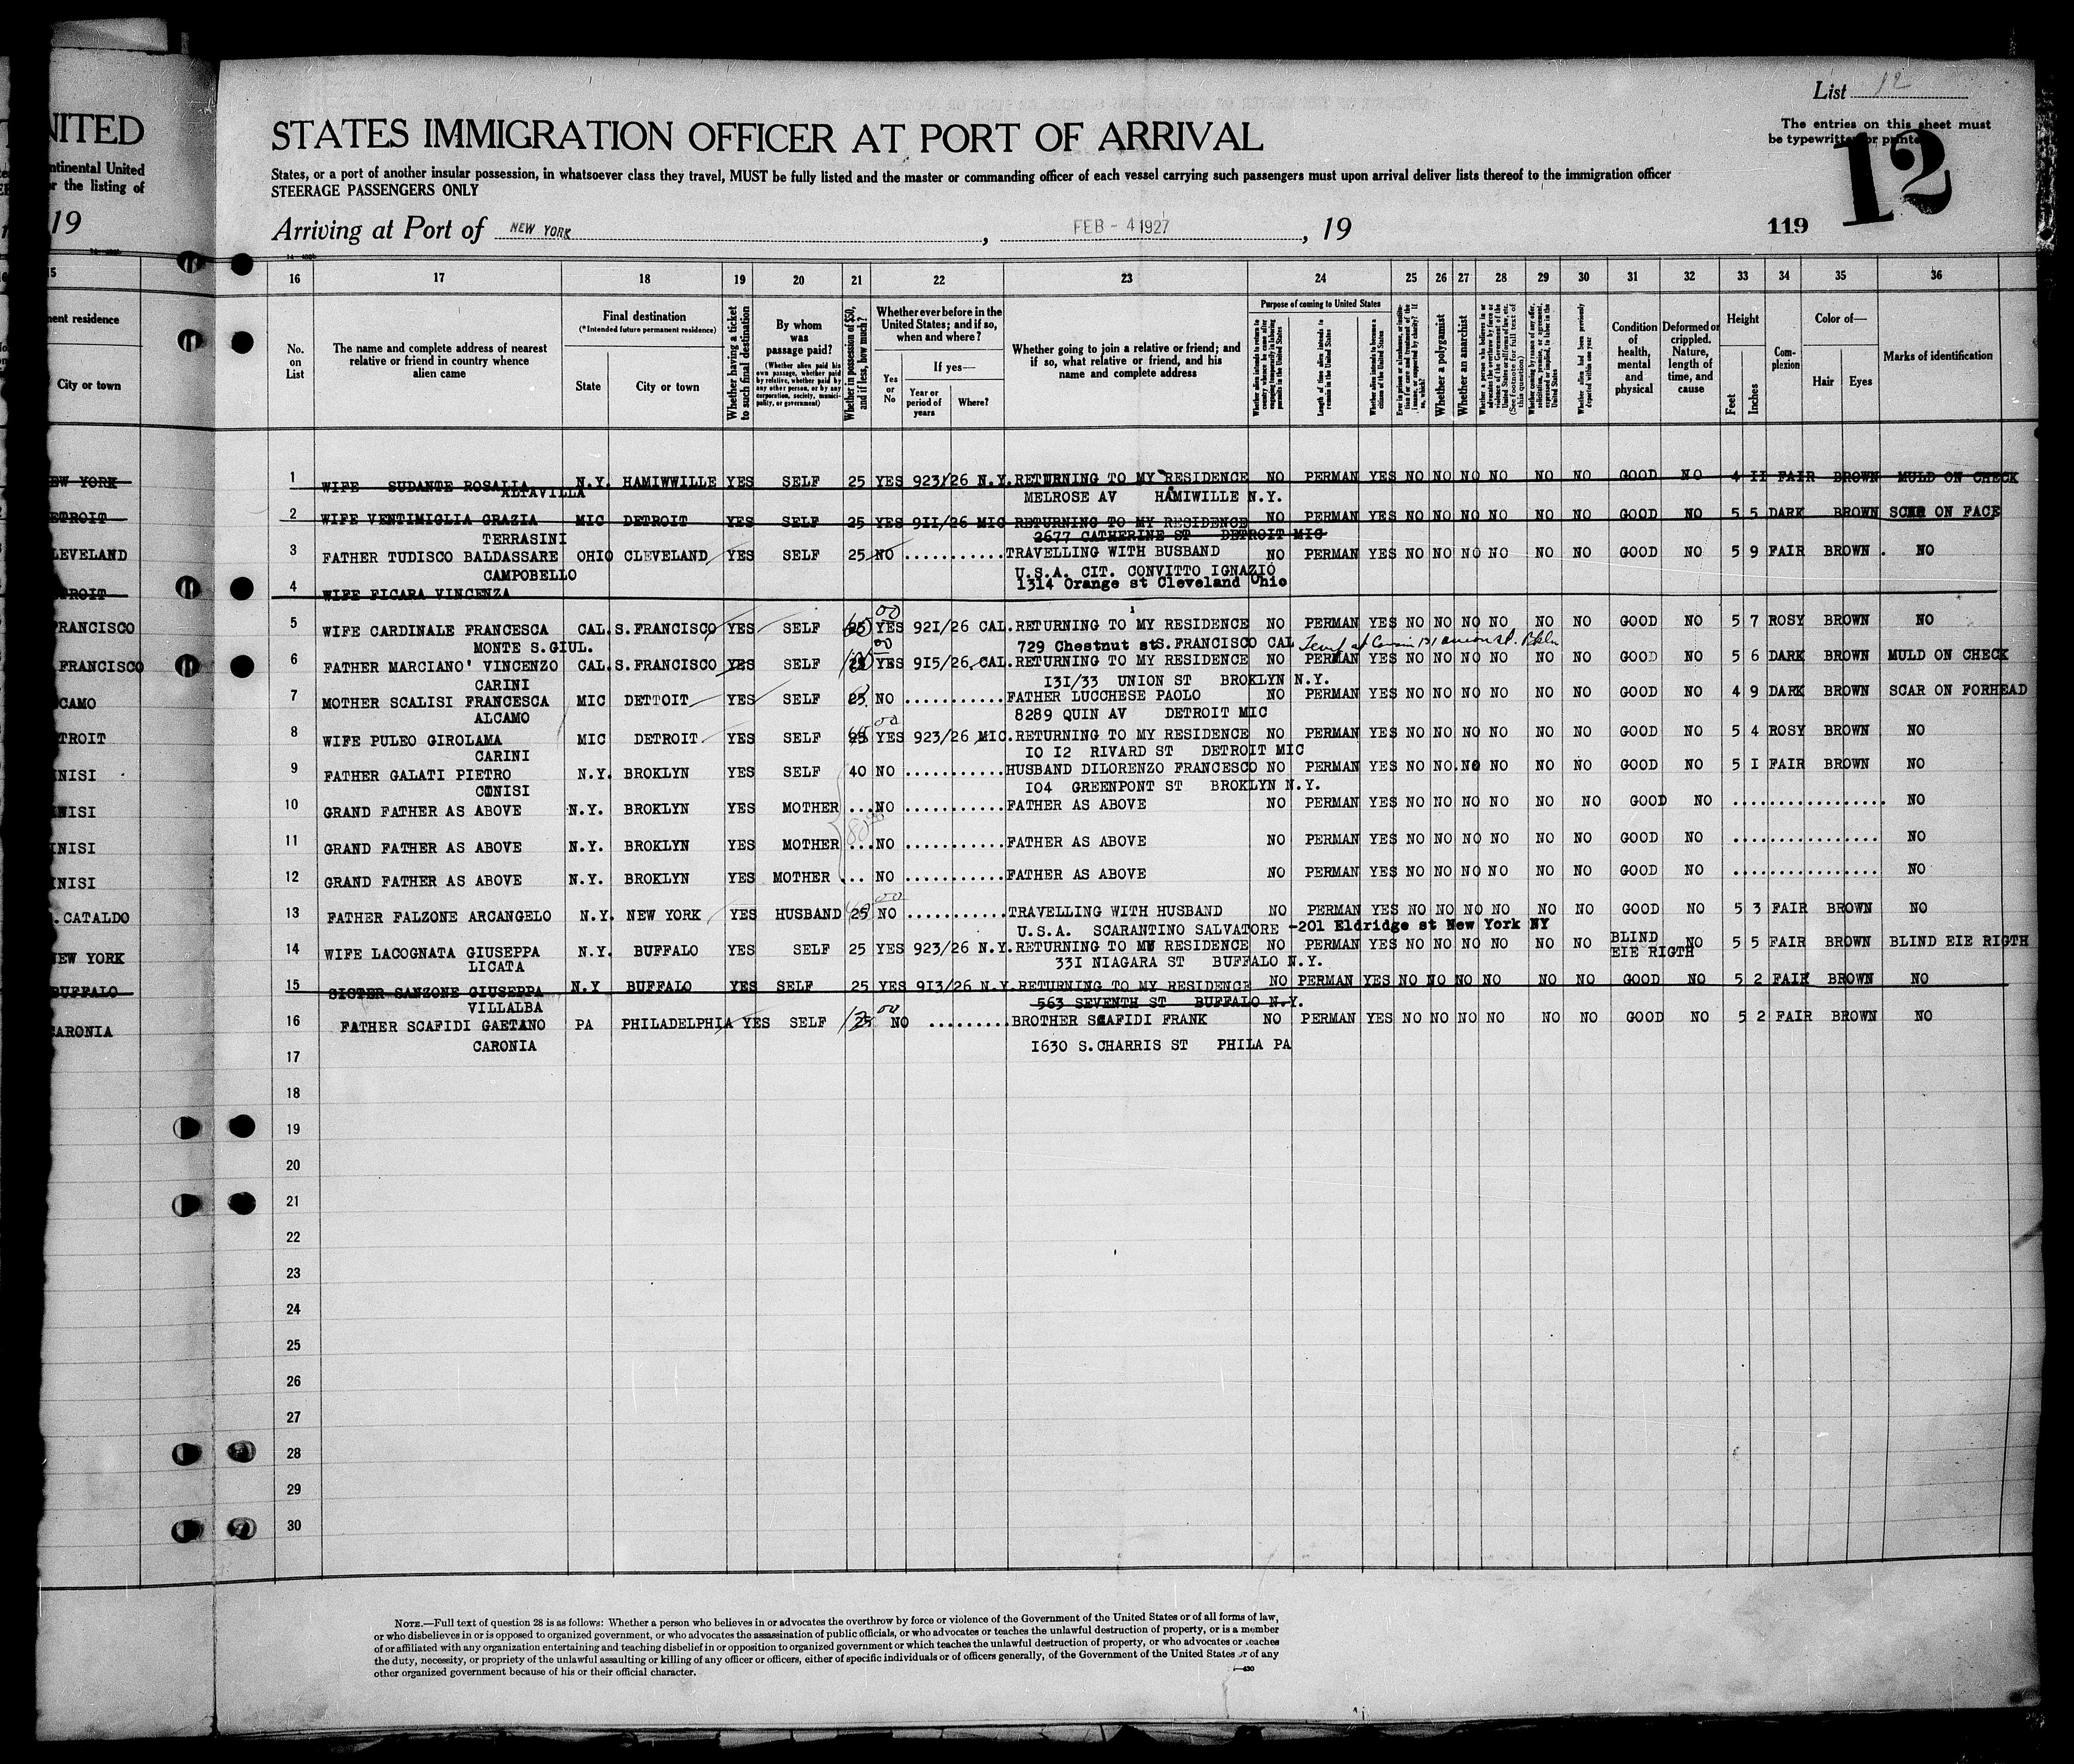 List 12
The entries on this sheet must
be typewritten or printed
12
NITED
STATES IMMIGRATION OFFICER AT PORT OF ARRIVAL
ntinental United
r the listing of
States, or a port of another insular possession, in whatsoever class they travel, MUST be fully listed and the master or commanding officer of each vessel carrying such passengers must upon arrival deliver lists thereof to the immigration officer
STEERAGE PASSENGERS ONLY
19
Arriving at Port of NEW YORK, FEB - 4 1927, 19
119
16 17 18 19 20 21 22 23 24 25 26 27 28 29 30 31 32 33 34 35 36
ent residence
City or town
No. on List
The name and complete address of nearest relative or friend in country whence alien came
Final destination
(*Intended future permanent residence)
State
City or town
Whether having a ticket to such final destination
By whom was passage paid?
(Whether alien paid his own passage, whether paid by relative, whether paid by any other person, or by any corporation, society, municipality, or government)
Whether in possession of $50, and if less, how much?
Whether ever before in the United States; and if so, when and where?
Yes or No
If yes—
Year or period of years
Where?
Whether going to join a relative or friend; and if so, what relative or friend, and his name and complete address
Purpose of coming to United States
Length of time alien intends to remain in the United States
Whether alien intends to become a citizen of the United States
Whether a polygamist
Whether an anarchist
Condition of health, mental and physical
Deformed or crippled. Nature, length of time, and cause
Height
Feet
Inches
Complexion
Color of—
Hair
Eyes
Marks of identification
EW YORK 1 WIFE SUDANTE ROSALIA N.Y. HAMIWWILLE YES SELF 25 YES 923/26 N.Y. RETURNING TO MY RESIDENCE NO PERMAN YES NO NO NO NO NO NO GOOD NO 4 II FAIR BROWN MULD ON CHECK
ALTAVILLA MELROSE AV HAMIWILLE N.Y.
ETROIT 2 WIFE VENTIMIGLIA GRAZIA MIC DETROIT YES SELF 25 YES 9II/26 MIC RETURNING TO MY RESIDENCE NO PERMAN YES NO NO NO NO NO NO GOOD NO 5 5 DARK BROWN SCAR ON FACE
TERRASINI 2677 CATHERINE ST DETROIT MIC
LEVELAND 3 FATHER TUDISCO BALDASSARE OHIO CLEVELAND YES SELF 25 NO ........... TRAVELLING WITH BUSBAND NO PERMAN YES NO NO NO NO NO NO GOOD NO 5 9 FAIR BROWN . NO
CAMPOBELLO U.S.A. CIT. CONVITTO IGNAZIO
1314 Orange st Cleveland Ohio
TROIT 4 WIFE FICARA VINCENZA
FRANCISCO 5 WIFE CARDINALE FRANCESCA CAL. S.FRANCISCO YES SELF YES 92I/26 CAL. RETURNING TO MY RESIDENCE NO PERMAN YES NO NO NO NO NO NO GOOD NO 5 7 ROSY BROWN NO
MONTE S.GIUL. 729 Chestnut st S.FRANCISCO CAL
FRANCISCO 6 FATHER MARCIANO' VINCENZO CAL. S.FRANCISCO YES SELF YES 9I5/26 CAL. RETURNING TO MY RESIDENCE NO PERMAN YES NO NO NO NO NO NO GOOD NO 5 6 DARK BROWN MULD ON CHECK
CARINI I3I/33 UNION ST BROKLYN N.Y.
CAMO 7 MOTHER SCALISI FRANCESCA MIC DETTOIT YES SELF 25 NO ........... FATHER LUCCHESE PAOLO NO PERMAN YES NO NO NO NO NO NO GOOD NO 4 9 DARK BROWN SCAR ON FORHEAD
ALCAMO 8289 QUIN AV DETROIT MIC
TROIT 8 WIFE PULEO GIROLAMA MIC DETROIT YES SELF YES 923/26 MIC. RETURNING TO MY RESIDENCE NO PERMAN YES NO NO NO NO NO NO GOOD NO 5 4 ROSY BROWN NO
CARINI IO I2 RIVARD ST DETROIT MIC
NISI 9 FATHER GALATI PIETRO N.Y. BROKLYN YES SELF 40 NO ........... HUSBAND DILORENZO FRANCESCO NO PERMAN YES NO NO NO NO NO NO GOOD NO 5 I FAIR BROWN NO
CINISI IO4 GREENPONT ST BROKLYN N.Y.
NISI 10 GRAND FATHER AS ABOVE N.Y. BROKLYN YES MOTHER ... NO ........... FATHER AS ABOVE NO PERMAN YES NO NO NO NO NO NO GOOD NO ................. NO
INISI 11 GRAND FATHER AS ABOVE N.Y. BROKLYN YES MOTHER ... NO ........... FATHER AS ABOVE NO PERMAN YES NO NO NO NO NO NO GOOD NO ................ NO
INISI 12 GRAND FATHER AS ABOVE N.Y. BROKLYN YES MOTHER ... NO ........... FATHER AS ABOVE NO PERMAN YES NO NO NO NO NO NO GOOD NO ................ NO
. CATALDO 13 FATHER FALZONE ARCANGELO N.Y. NEW YORK YES HUSBAND 25 NO ........... TRAVELLING WITH HUSBAND NO PERMAN YES NO NO NO NO NO NO GOOD NO 5 3 FAIR BROWN NO
U.S.A. SCARANTINO SALVATORE -201 Eldridge st New York NY
NEW YORK 14 WIFE LACOGNATA GIUSEPPA N.Y. BUFFALO YES SELF 25 YES 923/26 N.Y. RETURNING TO MY RESIDENCE NO PERMAN YES NO NO NO NO NO NO BLIND EIE RIGTH NO 5 5 FAIR BROWN BLIND EIE RIGTH
LICATA 33I NIAGARA ST BUFFALO N.Y.
BUFFALO 15 SISTER SANZONE GIUSEPPA N.Y BUFFALO YES SELF 25 YES 9I3/26 N.Y. RETURNING TO MY RESIDENCE NO PERMAN YES NO NO NO NO NO NO GOOD NO 5 2 FAIR BROWN NO
VILLALBA 563 SEVENTH ST BUFFALO N.Y.
CARONIA 16 FATHER SCAFIDI GAETANO PA PHILADELPHIA YES SELF 25 NO ......... BROTHER SCAFIDI FRANK NO PERMAN YES NO NO NO NO NO NO GOOD NO 5 2 FAIR BROWN NO
CARONIA I630 S.CHARRIS ST PHILA PA
17
18
19
20
21
22
23
24
25
26
27
28
29
30
NOTE.—Full text of question 28 is as follows: Whether a person who believes in or advocates the overthrow by force or violence of the Government of the United States or of all forms of law,
or who disbelieves in or is opposed to organized government, or who advocates the assassination of public officials, or who advocates or teaches the unlawful destruction of property, or is a member
of or affiliated with any organization entertaining and teaching disbelief in or opposition to organized government or which teaches the unlawful destruction of property, or who advocates or teaches
the duty, necessity, or propriety of the unlawful assaulting or killing of any officer or officers, either of specific individuals or of officers generally, of the Government of the United States or of any
other organized government because of his or their official character.